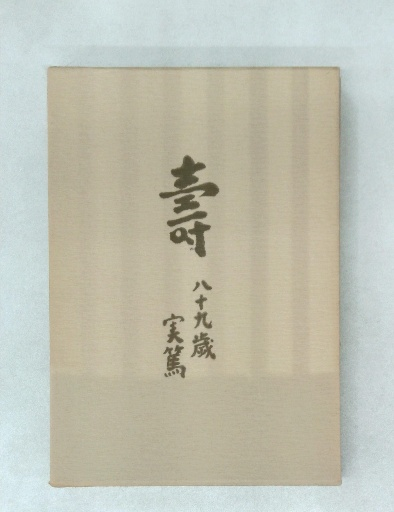 壽
八十九歳
実篤